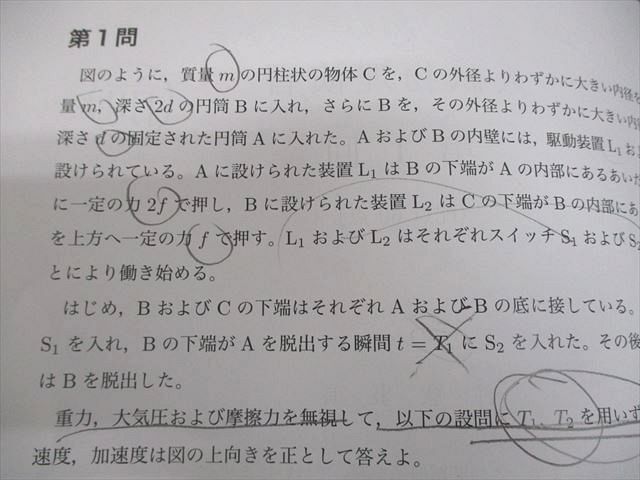 第1問
図のように，質量 m の円柱状の物体 C を，C の外径よりわずかに大きい内径を
量 m，深さ 2d の円筒 B に入れ，さらに B を，その外径よりわずかに大きい内
深さ d の固定された円筒 A に入れた。A および B の内壁には，駆動装置 L₁ およ
設けられている。A に設けられた装置 L₁ は B の下端が A の内部にあるあいだ
に一定の力 2f で押し，B に設けられた装置 L₂ は C の下端が B の内部にあ
を上方へ一定の力 f で押す。L₁ および L₂ はそれぞれスイッチ S₁ および S₂
とにより働き始める。
はじめ，B および C の下端はそれぞれ A および B の底に接している。
S₁ を入れ，B の下端が A を脱出する瞬間 t = T₁ に S₂ を入れた。その後
は B を脱出した。
重力，大気圧および摩擦力を無視して，以下の設問に T₁、T₂ を用いず
速度，加速度は図の上向きを正として答えよ。